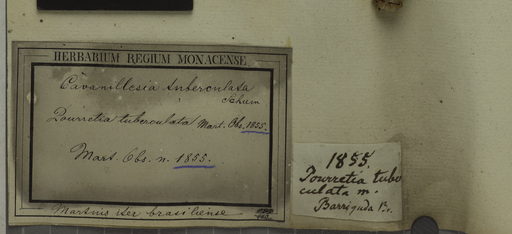 HERBARIUM REGIUM MONACENSE
Cavanillesia tuberculata
Schum
Pourretia tuberculata Mart. Obs. 1855.
Mart. Obs. n. 1855.
Martius iter brasiliense
1855.
Pourretia tuber
culata m.
Barriguda